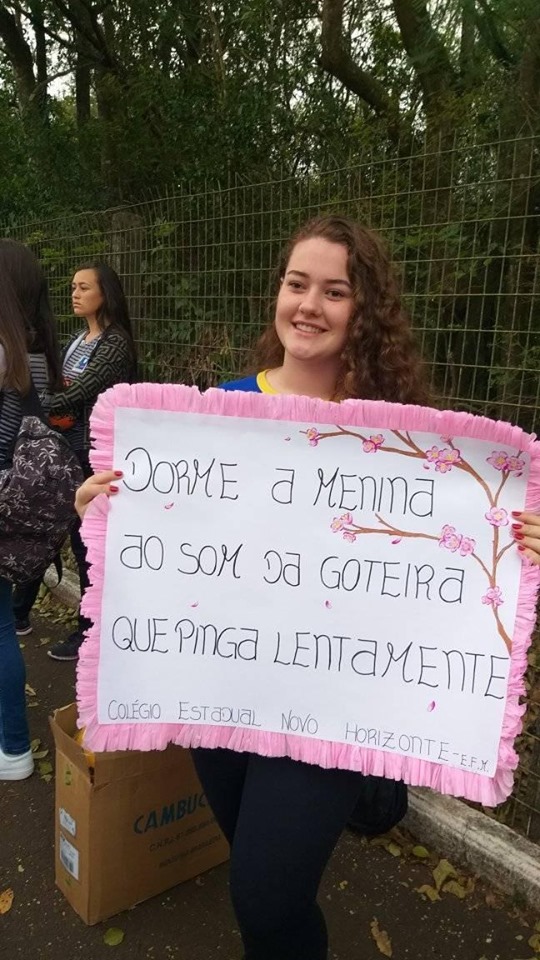 DORME a MENINa
aO SOM Da GOTEIRa
QUE PINGa LENTaMENTE
COLÉGIO ESTaDUAL NOVO HORIZONTE-E.F.M.
CAMBUC